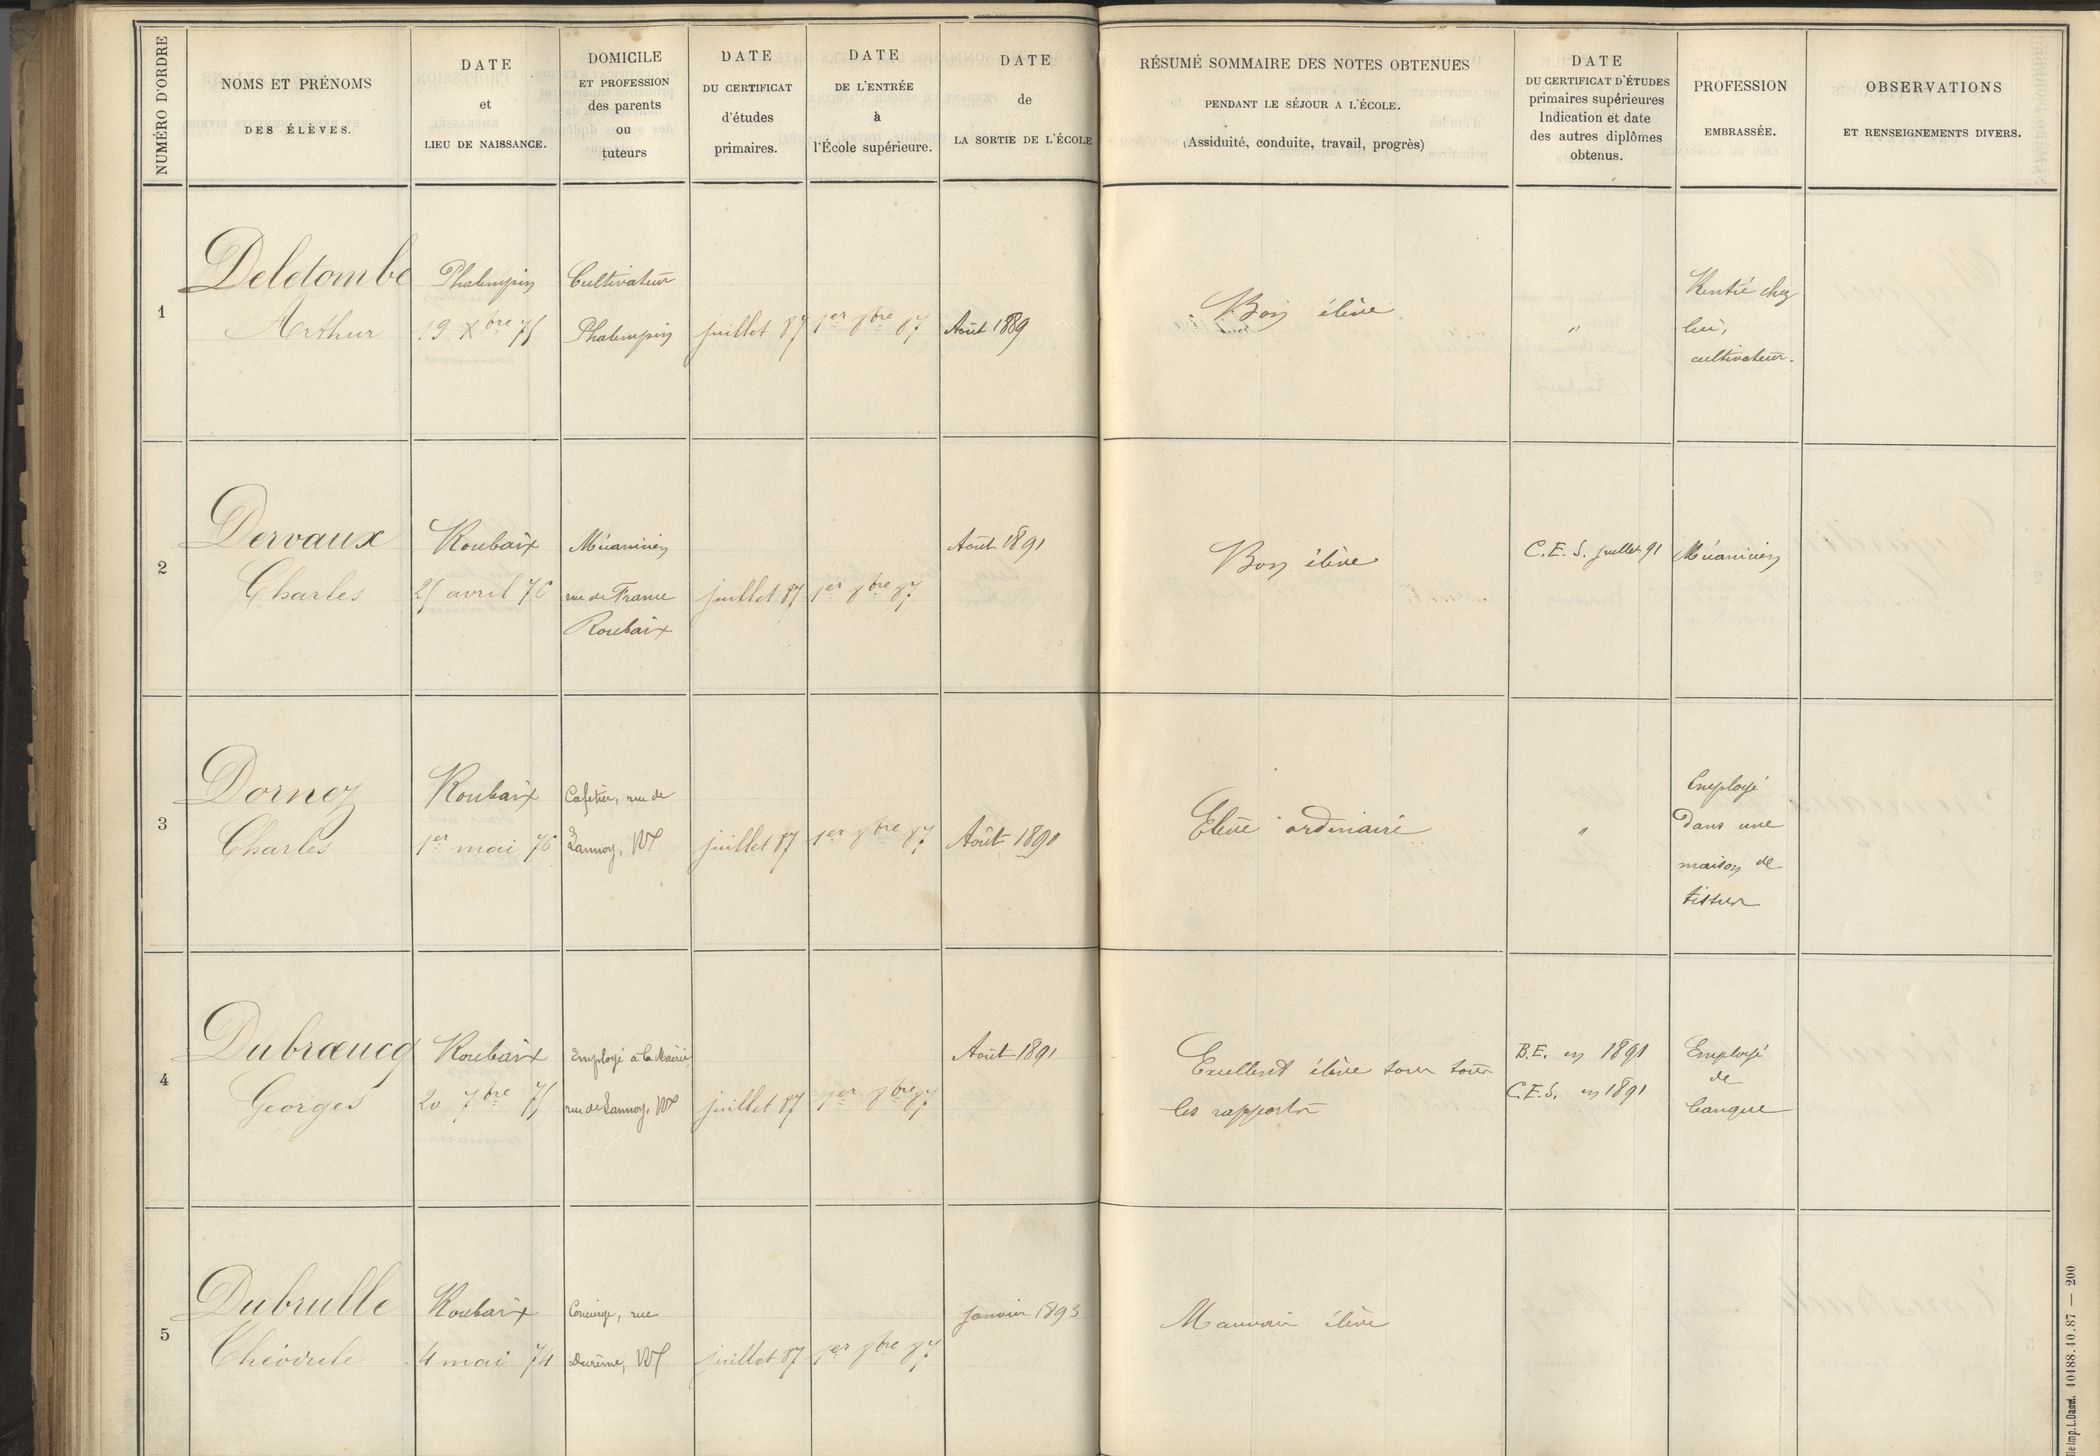 NUMÉRO D'ORDRE
NOMS ET PRÉNOMS
DES ÉLÈVES.
DATE
et
LIEU DE NAISSANCE.
DOMICILE
ET PROFESSION
des parents
ou
tuteurs
DATE
DU CERTIFICAT
d'études
primaires.
DATE
DE L'ENTRÉE
à
l'École supérieure.
DATE
de
LA SORTIE DE L'ÉCOLE
RÉSUMÉ SOMMAIRE DES NOTES OBTENUES
PENDANT LE SÉJOUR A L'ÉCOLE.
(Assiduité, conduite, travail, progrès)
DATE
DU CERTIFICAT D'ÉTUDES
primaires supérieures
Indication et date
des autres diplômes
obtenus.
PROFESSION
EMBRASSÉE.
OBSERVATIONS
ET RENSEIGNEMENTS DIVERS.
1
Deletombe
Arthur
Phalempin
19 Xbre 75
Cultivateur
Phalempin
juillet 87
1er 8bre 87
Août 1889
Bon élève
"
Rentré chez
lui,
cultivateur.
2
Dervaux
Charles
Roubaix
25 avril 76
Mécanicien
rue de France
Roubaix
juillet 87
1er 8bre 87
Août 1891
Bon élève
C.E.S. juillet 91
Mécanicien
3
Dornez
Charles
Roubaix
1er mai 76
Cafetier, rue de
Lannoy, Rx
juillet 87
1er 8bre 87
Août 1890
Elève ordinaire
"
Employé
dans une
maison de
tissus
4
Dubrœucq
Georges
Roubaix
20 7bre 75
Employé à la Mairie,
rue de Lannoy, Rx
juillet 87
1er 8bre 87
Août 1891
Excellent élève sous tous
les rapports
B.E. en 1891
C.E.S. en 1891
Employé
de
banque
5
Dubrulle
Théodule
Roubaix
4 mai 74
Concierge, rue
Rx
juillet 87
1er 8bre 87
Janvier 1893
Mauvais élève
Imp. L. Danel. 40488.10.87 — 200